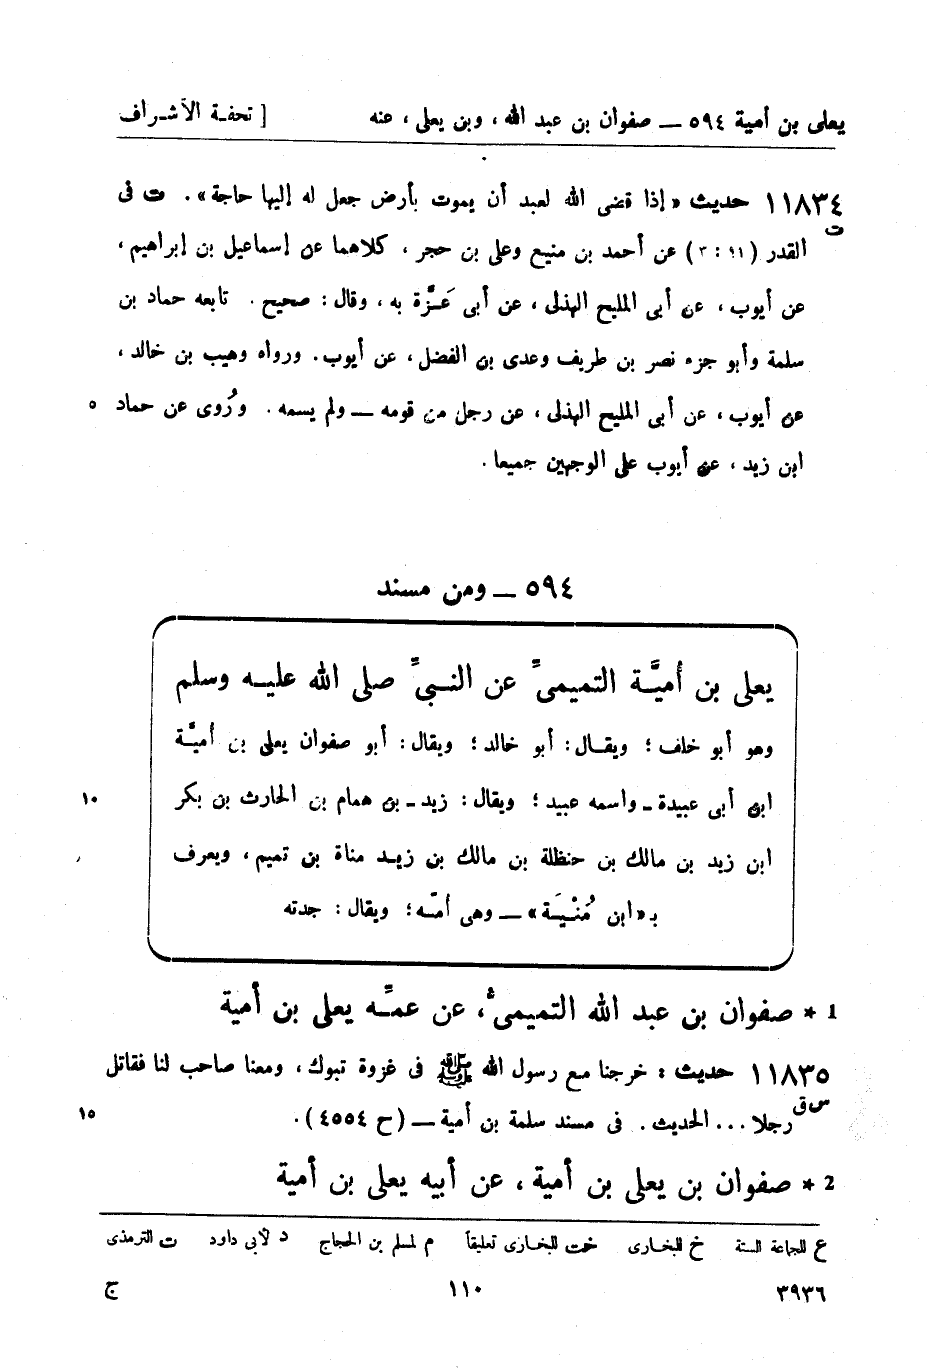 يعلى بن أمية ٥٩٤ ــ صفوان بن عبد الله ، وبن يعلى ، عنه [ تحفـة الأشـراف
١١٨٣٤ حديث « إذا قضى الله لعبد أن يموت بأرض جعل له إليها حاجة » . ت فى
ت
القدر ( ١١ : ٣ ) عن أحمد بن منيع وعلى بن حجر ، كلاهما عن إسماعيل بن إبراهيم ،
عن أيوب ، عن أبى المليح الهذلى ، عن أبى عَـزَّة به ، وقال : صحيح . تابعه حماد بن
سلمة وأبو جزء نصر بن طريف وعدى بن الفضل ، عن أيوب . ورواه وهيب بن خالد ،
عن أيوب ، عن أبى المليح الهذلى ، عن رجل من قومه ــ ولم يسمه . ورُوى عن حماد ٥
ابن زيد ، عن أيوب على الوجهين جميعا .
٥٩٤ ــ ومن مسند
يعلى بن أميَّـة التميمىِّ عن النـبىِّ صلى الله عليـه وسلم
وهو أبو خلف ؛ ويقـال : أبو خالد ؛ ويقال : أبو صفوان يعلى بن أميَّـة
ابن أبى عبيدة ـ واسمه عبيد ؛ ويقال : زيد ـ بن همام بن الحارث بن بكر ١٠
ابن زيد بن مالك بن حنظلة بن مالك بن زيـد مناة بن تميم ، ويعرف
بـ « ابن مُنْـيَـة » ــ وهى أمّـه ؛ ويقال : جدته
1 * صفوان بن عبد الله التميمىُّ ، عن عمِّـه يعلى بن أمية
١١٨٣٥ حديث : خرجنا مـع رسول الله ﷺ فى غزوة تبوك ، ومعنا صاحب لنا فقاتل
س ق
رجلا ... الحديث . فى مسند سلمة بن أمية ــ ( ح ٤٥٥٤ ) . ١٥
2 * صفوان بن يعلى بن أمية ، عن أبيه يعلى بن أمية
ع للجماعة الستة خ للبخارى خت للبخارى تعليقاً م لمسلم بن الحجاج د لأبى داود ت الترمذى
٣٩٣٦ ١١٠ ج